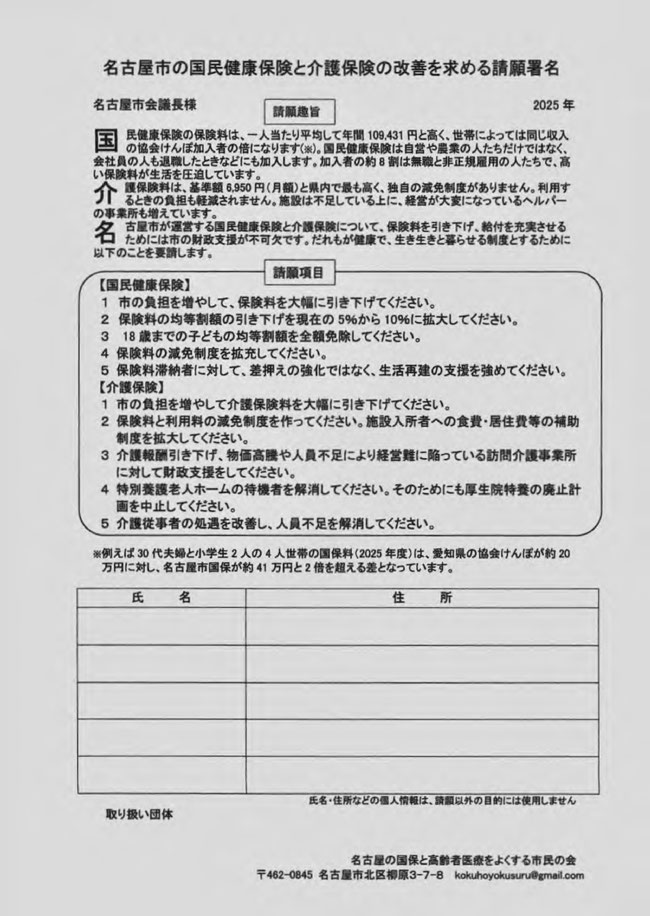 名古屋市の国民健康保険と介護保険の改善を求める請願署名
名古屋市会議長様
請願趣旨
2025 年
国民健康保険の保険料は、一人当たり平均して年間 109,431 円と高く、世帯によっては同じ収入
の協会けんぽ加入者の倍になります(※)。国民健康保険は自営や農業の人たちだけではなく、
会社員の人も退職したときなどにも加入します。加入者の約 8 割は無職と非正規雇用の人たちで、高
い保険料が生活を圧迫しています。
介護保険料は、基準額 6,950 円(月額)と県内で最も高く、独自の減免制度がありません。利用す
るときの負担も軽減されません。施設は不足している上に、経営が大変になっているヘルパー
の事業所も増えています。
名古屋市が運営する国民健康保険と介護保険について、保険料を引き下げ、給付を充実させる
ためには市の財政支援が不可欠です。だれもが健康で、生き生きと暮らせる制度とするために
以下のことを要請します。
請願項目
【国民健康保険】
1 市の負担を増やして、保険料を大幅に引き下げてください。
2 保険料の均等割額の引き下げを現在の 5%から 10%に拡大してください。
3 18 歳までの子どもの均等割額を全額免除してください。
4 保険料の減免制度を拡充してください。
5 保険料滞納者に対して、差押えの強化ではなく、生活再建の支援を強めてください。
【介護保険】
1 市の負担を増やして介護保険料を大幅に引き下げてください。
2 保険料と利用料の減免制度を作ってください。施設入所者への食費・居住費等の補助
制度を拡大してください。
3 介護報酬引き下げ、物価高騰や人員不足により経営難に陥っている訪問介護事業所
に対して財政支援をしてください。
4 特別養護老人ホームの待機者を解消してください。そのためにも厚生院特養の廃止計
画を中止してください。
5 介護従事者の処遇を改善し、人員不足を解消してください。
※例えば 30 代夫婦と小学生 2 人の 4 人世帯の国保料(2025 年度)は、愛知県の協会けんぽが約 20
万円に対し、名古屋市国保が約 41 万円と 2 倍を超える差となっています。
氏 名
住 所
氏名・住所などの個人情報は、請願以外の目的には使用しません
取り扱い団体
名古屋の国保と高齢者医療をよくする市民の会
〒462-0845 名古屋市北区柳原3-7-8 kokuhoyokusuru@gmail.com